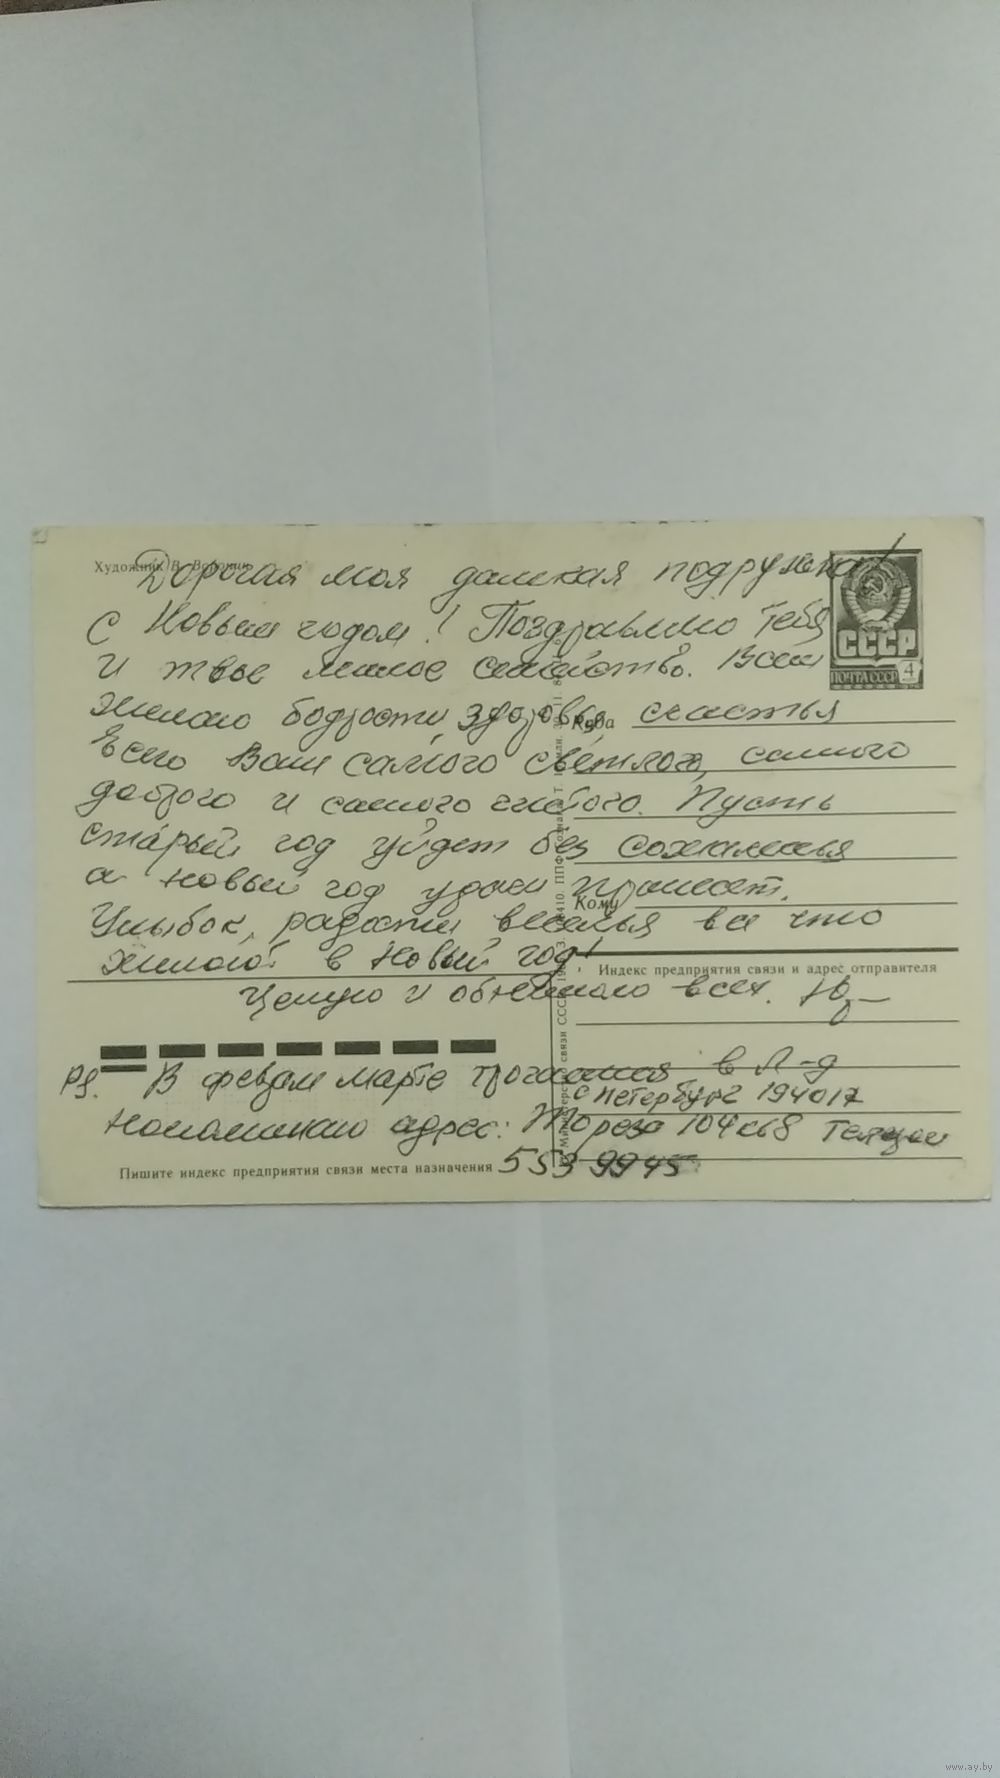 Художник В.
Дорогая моя далекая подружка!
С Новым годом! Поздравляю тебя
и твое милое семейство. Всем
желаю бодрости, здоровья счастья
Всего Вам самого светлого, самого
доброго и самого чистого. Пусть
старый год уйдет без сожаленья
а новый год удачи принесет.
Улыбок, радости веселья все что
желают в Новый год!
Целую и обнимаю всех. Ю
PS. В феврале марте в Л-д
С Петербург 194017
Напоминаю адрес: Тореза 104 кв 8 Телефон
553 99 45
ПОЧТА СССР
СССР
4
Куда
Кому
Индекс предприятия связи и адрес отправителя
Пишите индекс предприятия связи места назначения
www.ay.by